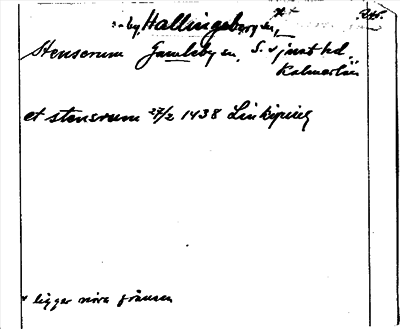 by Hallingeberg sn,
Stenserum Gamleby sn, S. Tjust hd
Kalmar län
et stensrum 27/2 1438 Linköping
x ligger nära gränsen